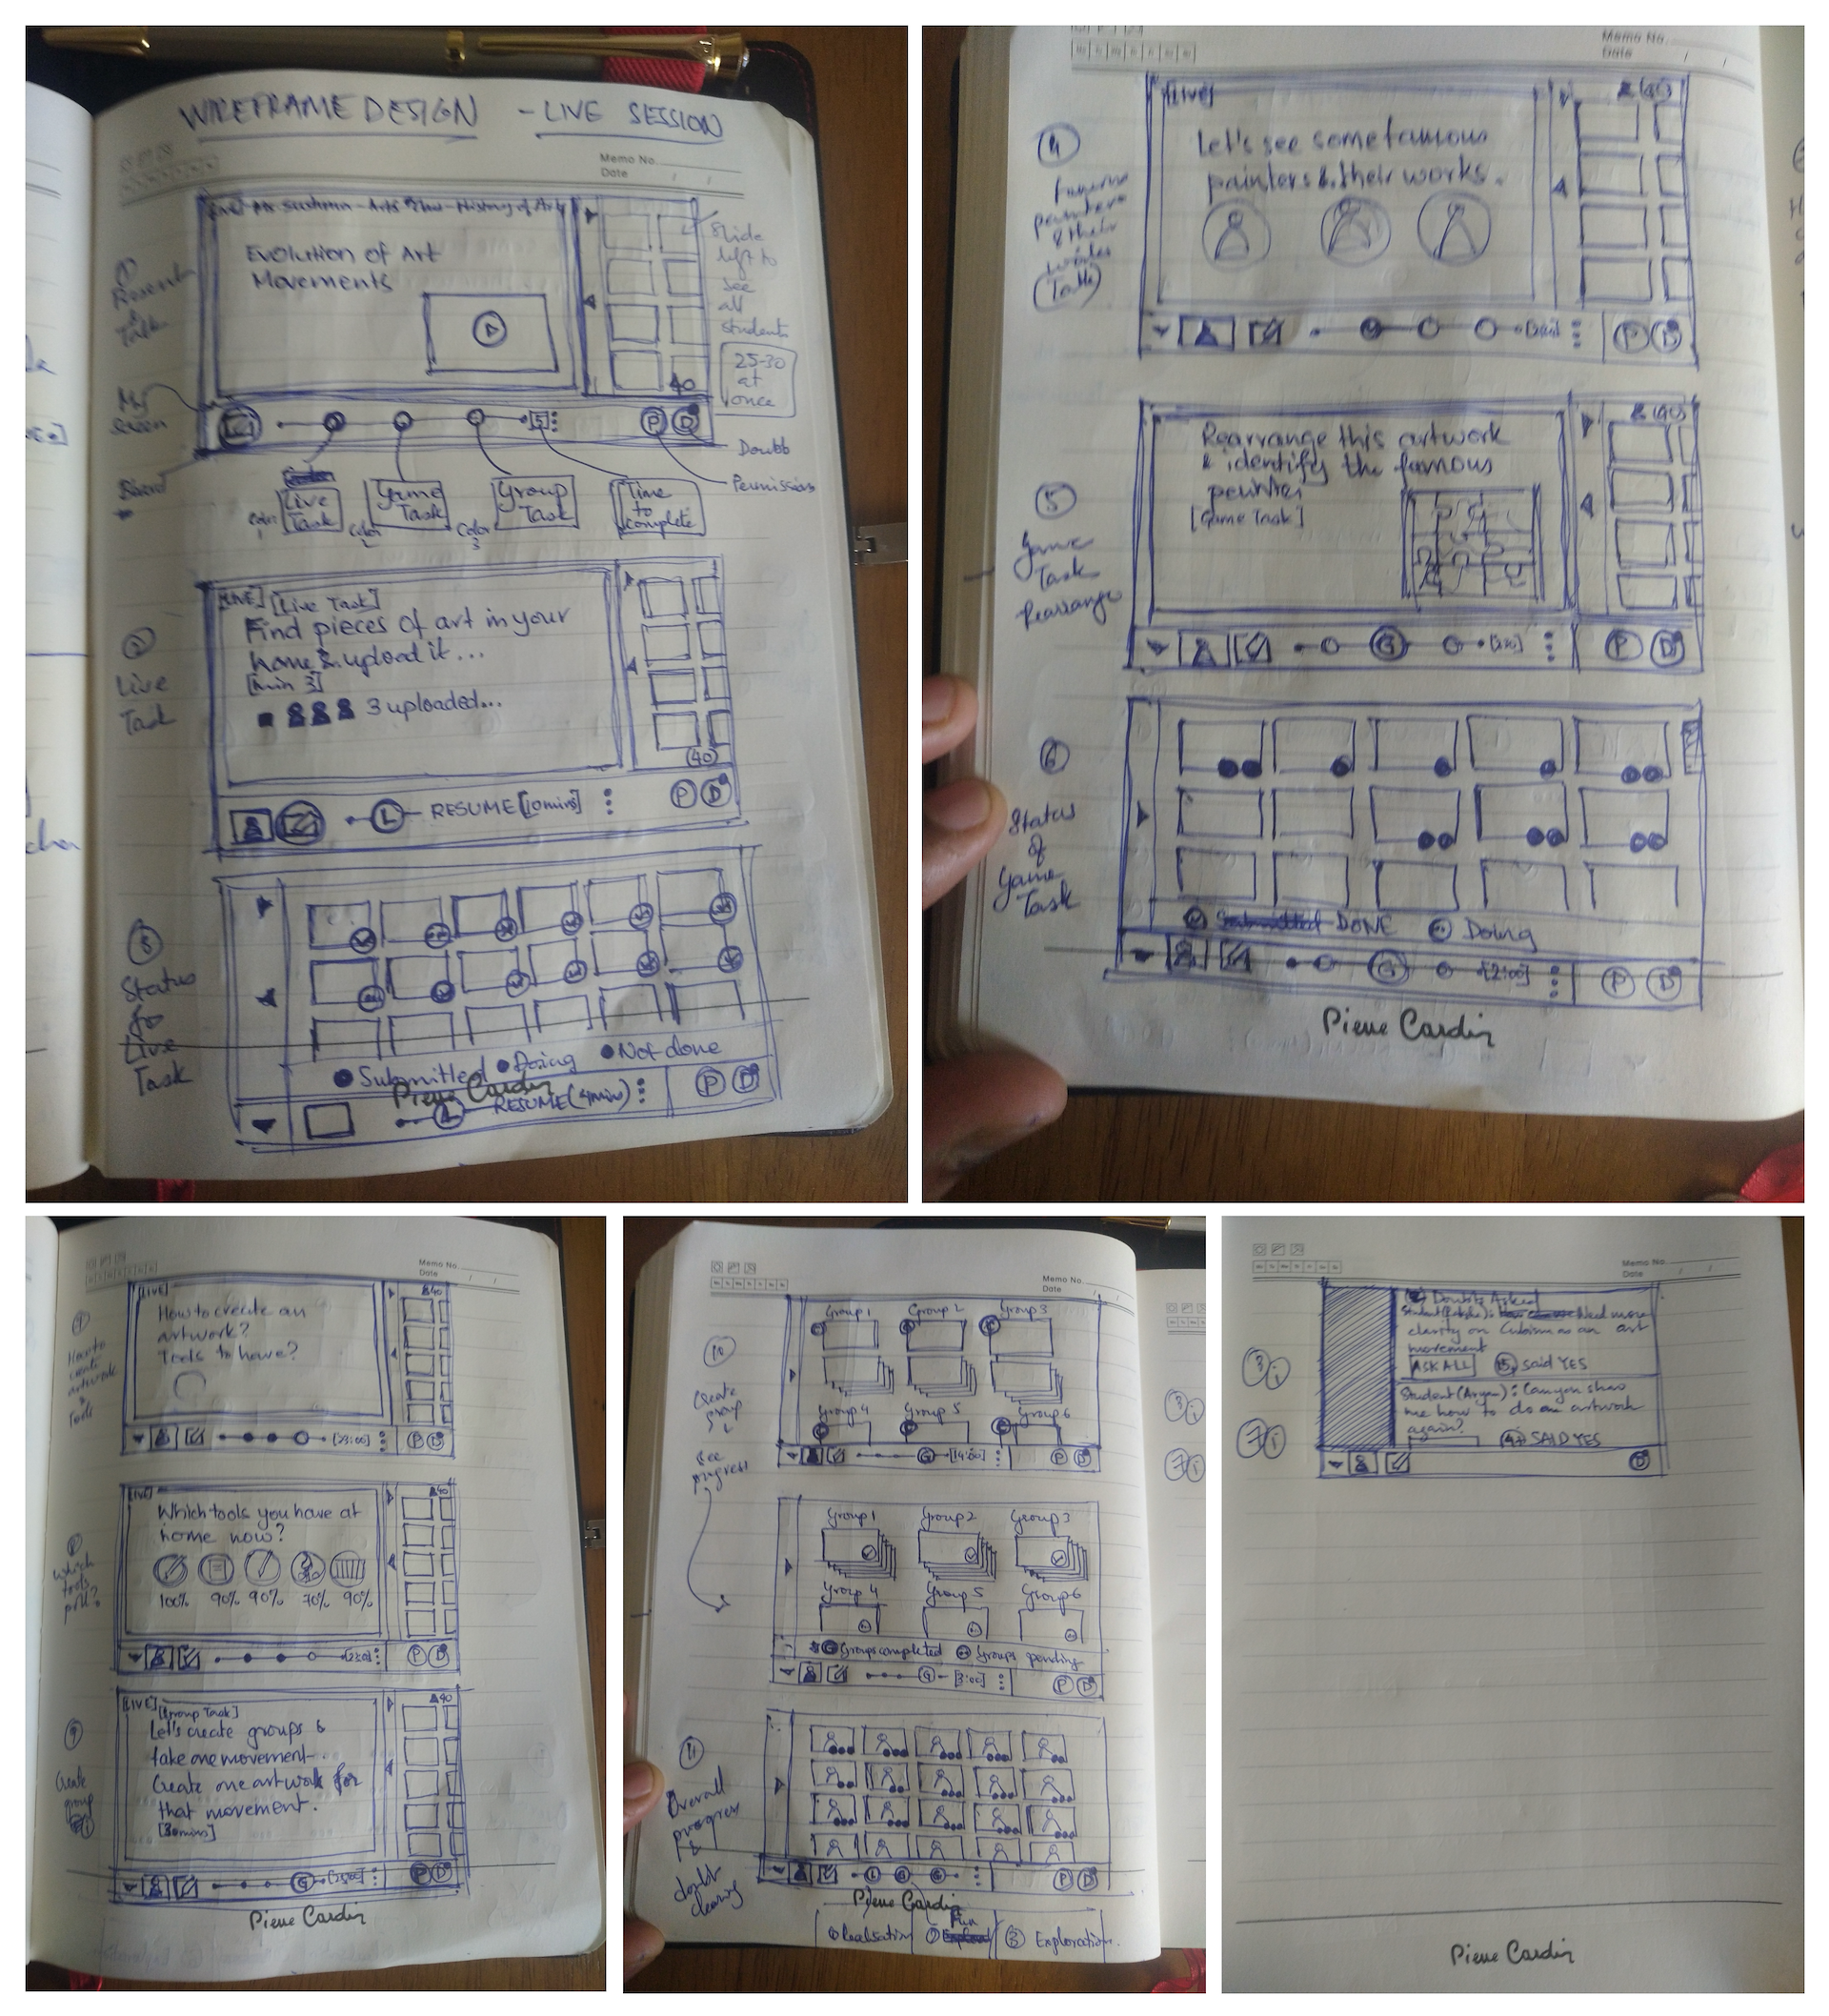 WIREFRAME DESIGN - LIVE SESSION
Memo No.
Date / /
[LIVE] Ms Sushma - Arts - History of Art
Evolution of Art
Movements
Slide
left to
see
all
students
25-30
at
once
40
①
Present
&
Talk
My
Screen
[5]
P D
Doubts
Permissions
Board
Color 1
Live
Task
Color 2
Game
Task
Color 3
Group
Task
Time
to
complete
②
Live
Task
[LIVE] [Live Task]
Find pieces of art in your
home & upload it...
[min 3]
3 uploaded...
(40)
L RESUME [10mins]
P D
③
Status
for
Live
Task
Submitted Doing Not done
Pierre Cardin
L RESUME (4min)
P D
Memo No.
Date / /
④
Famous
painters
& their
works
(Talk)
[LIVE]
(40)
Let's see some famous
painters & their works.
P D
⑤
Game
Task
Rearrange
(40)
Rearrange this artwork
& identify the famous
painter
[Game Task]
G
P D
⑥
Status
of
Game
Task
DONE Doing
G [2:00]
P D
Pierre Cardin
Memo No.
Date / /
How to
create
artwork
&
Tools
[LIVE]
40
How to create an
artwork?
Tools to have?
[23:00]
P D
8
Which
tools
poll?
[LIVE]
40
Which tools you have at
home now?
100% 90% 90% 70% 90%
P D
9
Create
group
[LIVE] [Group Task]
40
Let's create groups &
take one movement.
Create one artwork for
that movement.
[30mins]
G [25:00]
P D
Pierre Cardin
Memo No.
Date / /
10
Create
group
&
See
progress
Group 1 Group 2 Group 3
Group 4 Group 5 Group 6
G [14:00]
P D
Group 1 Group 2 Group 3
Group 4 Group 5 Group 6
Groups completed Groups pending
G [3:00]
P D
11
Overall
progress
&
doubt
clearing
L G G
P D
Pierre Cardin
① Realisation ② Fun ③ Exploration
3 i
7 i
Memo No.
Date / /
3 i
7 i
Doubts Asked
Need more
clarity on Cubism as an art
movement
ASK ALL 15 said YES
Student (Aryan): Can you show
me how to do an artwork
again?
SAID YES
D
Pierre Cardin